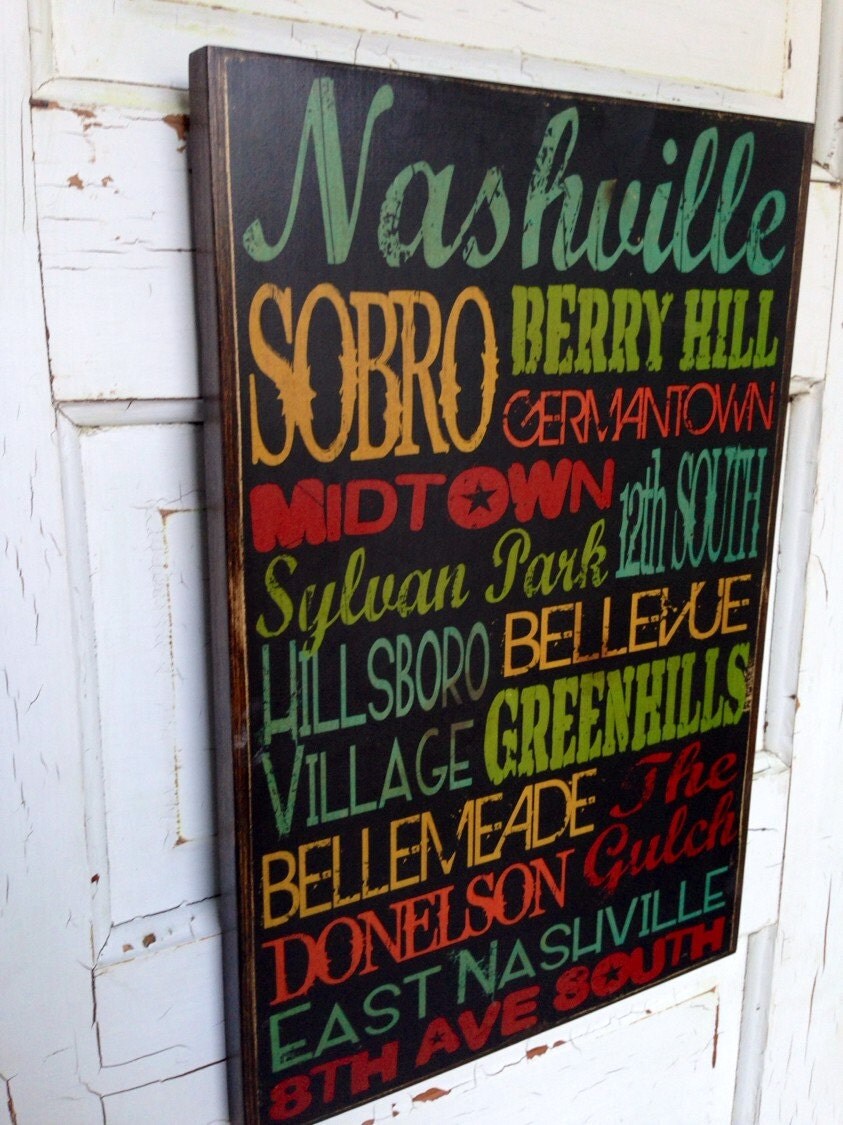 Nashville
SOBRO
BERRY HILL
GERMANTOWN
MIDTOWN
12th SOUTH
Sylvan Park
BELLEVUE
HILLSBORO
VILLAGE
GREENHILLS
BELLEMEADE
The
Gulch
DONELSON
EAST NASHVILLE
8TH AVE SOUTH